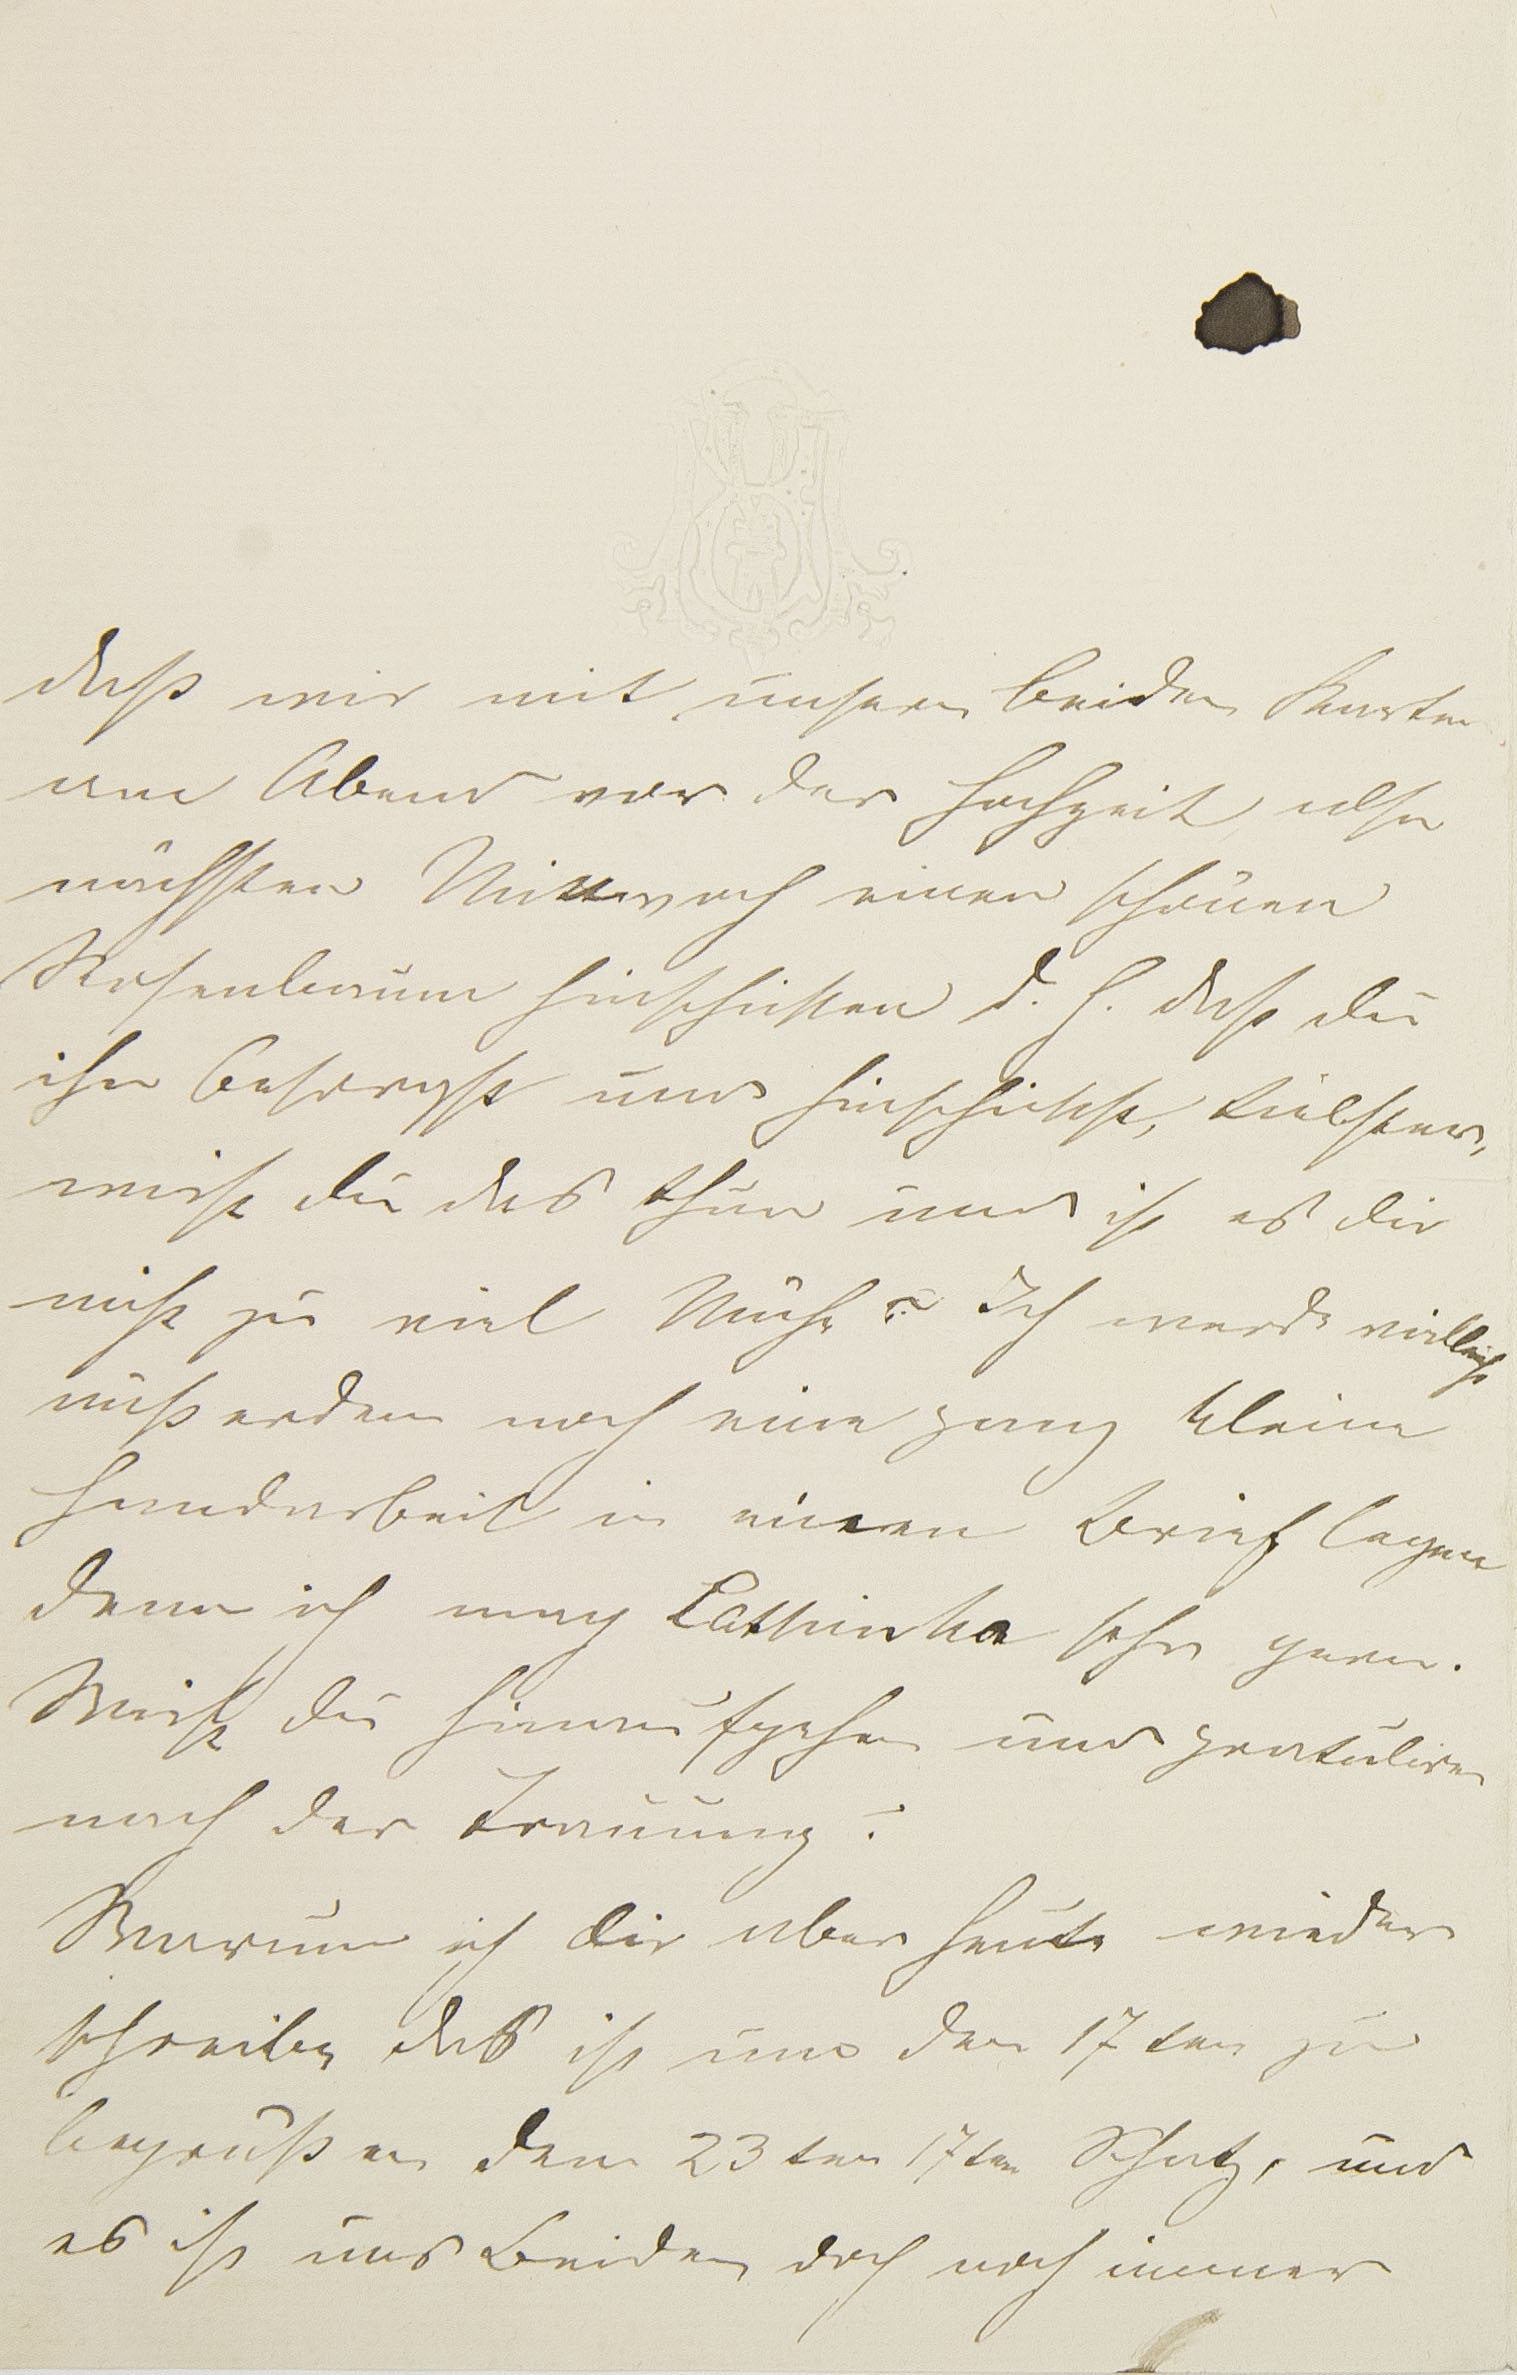 daß wir mit unsern beiden Karten
am Abend vor der Hochzeit also
nächsten Mittwoch einen schönen
Rosenbaum hinschicken d. h. daß du
ihn besorgst und hinschickst, Liebster,
wirst du das thun und ist es dir
nicht zu viel Mühe? Ich werde vielleicht
außerdem noch eine ganz kleine
Handarbeit in einen Brief legen
denn ich mag Cathinka sehr gern.
Wirst du hinaufgehen und gratuliren
nach der Trauung?
Warum ich dir aber heute wieder
schreibe, das ist um den 17ten zu
begrüßen den 23ten 17ten Schatz, und
es ist uns Beiden doch noch immer